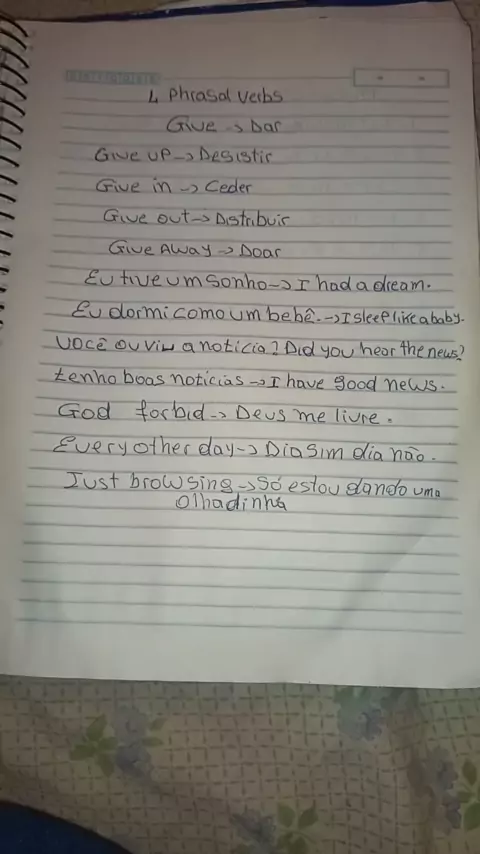 4 Phrasal verbs
Give -> Dar
Give up -> Desistir
Give in -> Ceder
Give out -> Distribuir
Give Away -> Doar
Eu tive um sonho -> I had a dream.
Eu dormi como um bebê. -> I sleep like a baby.
Você ouviu a notícia? Did you hear the news?
tenho boas noticias -> I have good news.
God forbid -> Deus me livre.
Every other day -> Dia sim dia não.
Just browsing -> Só estou dando uma
olhadinha